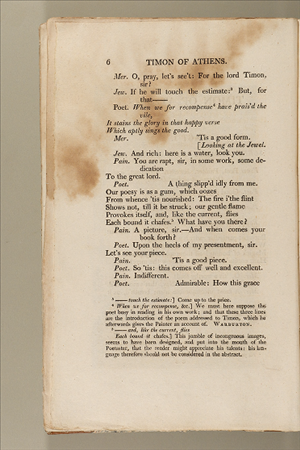 6 TIMON OF ATHENS.
Mer. O, pray, let's see't: For the lord Timon,
sir?
Jew. If he will touch the estimate:³ But, for
that——
Poet. When we for recompense⁴ have prais'd the
vile,
It stains the glory in that happy verse
Which aptly sings the good.
Mer. 'Tis a good form.
[Looking at the Jewel.
Jew. And rich: here is a water, look you.
Pain. You are rapt, sir, in some work, some de-
dication
To the great lord.
Poet. A thing slipp'd idly from me.
Our poesy is as a gum, which oozes
From whence 'tis nourished: The fire i'the flint
Shows not, till it be struck; our gentle flame
Provokes itself, and, like the current, flies
Each bound it chafes.⁵ What have you there?
Pain. A picture, sir.—And when comes your
book forth?
Poet. Upon the heels of my presentment, sir.
Let's see your piece.
Pain. 'Tis a good piece.
Poet. So 'tis: this comes off well and excellent.
Pain. Indifferent.
Poet. Admirable: How this grace
³ ——touch the estimate:] Come up to the price.
⁴ When we for recompense, &c.] We must here suppose the
poet busy in reading in his own work; and that these three lines
are the introduction of the poem addressed to Timon, which he
afterwards gives the Painter an account of. WARBURTON.
⁵ ——and, like the current, flies
Each bound it chafes.] This jumble of incongruous images,
seems to have been designed, and put into the mouth of the
Poetaster, that the reader might appreciate his talents: his lan-
guage therefore should not be considered in the abstract.